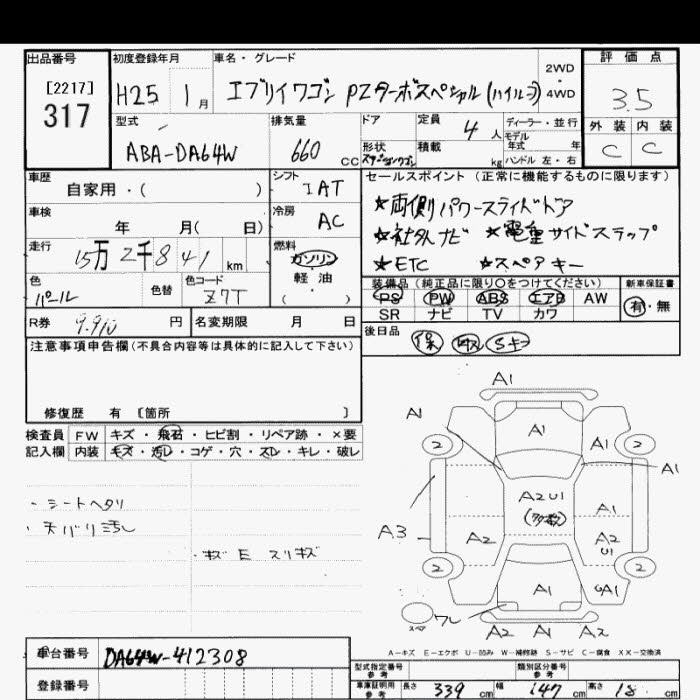 出品番号 初度登録年月 車名・グレード 評価点
[2217] 2WD・4WD
317 H25 1月 エブリイワゴン PZターボスペシャル(ハイルーフ) 3.5
型式 排気量 ドア 定員 4人 ディーラー・並行 外装 内装
モデル年式 年
ABA-DA64W 660 CC 形状 積載 kg ハンドル 左・右 C C
車歴 シフト セールスポイント (正常に機能するものに限ります)
自家用・( ) IAT ★両側パワースライドドア
車検 年 月( 日) 冷房 AC ★社外ナビ ★電動サイドステップ
走行 15万2千841km 燃料 ガソリン ★ETC ★スペアキー
色 パール 色替 色コード Z7T 軽油 ( )
装備品(純正品に限り○をつけてください) 新車保証書
PS PW ABS エアB AW 有・無
SR ナビ TV カワ
R券 9.910円 名変期限 月 日
後日品 保 取 Sキー
注意事項申告欄(不具合内容等は具体的に記入して下さい)
修復歴 有 [箇所 ]
検査員 FW キズ・飛石・ヒビ割・リペア跡・×要
記入欄 内装 キズ・汚レ・コゲ・穴・スレ・キレ・破レ
・シートヘタリ
・天バリ汚レ
・キズ E スリキズ
A1
A1 A1 A1
2 2
A1
A2U1 A1
A3 A2 A2
U1
2 2
A1 A1
スペア ワレ
A2 A1 A2
A-キズ E-エクボ U-凹み W-補修跡 S-サビ C-腐食 XX-交換済
車台番号 DA64W-412308 型式指定番号 参考 類別区分番号 参考
登録番号 車庫証明用 参考 長さ 339 cm 幅 147 cm 高さ 18 cm